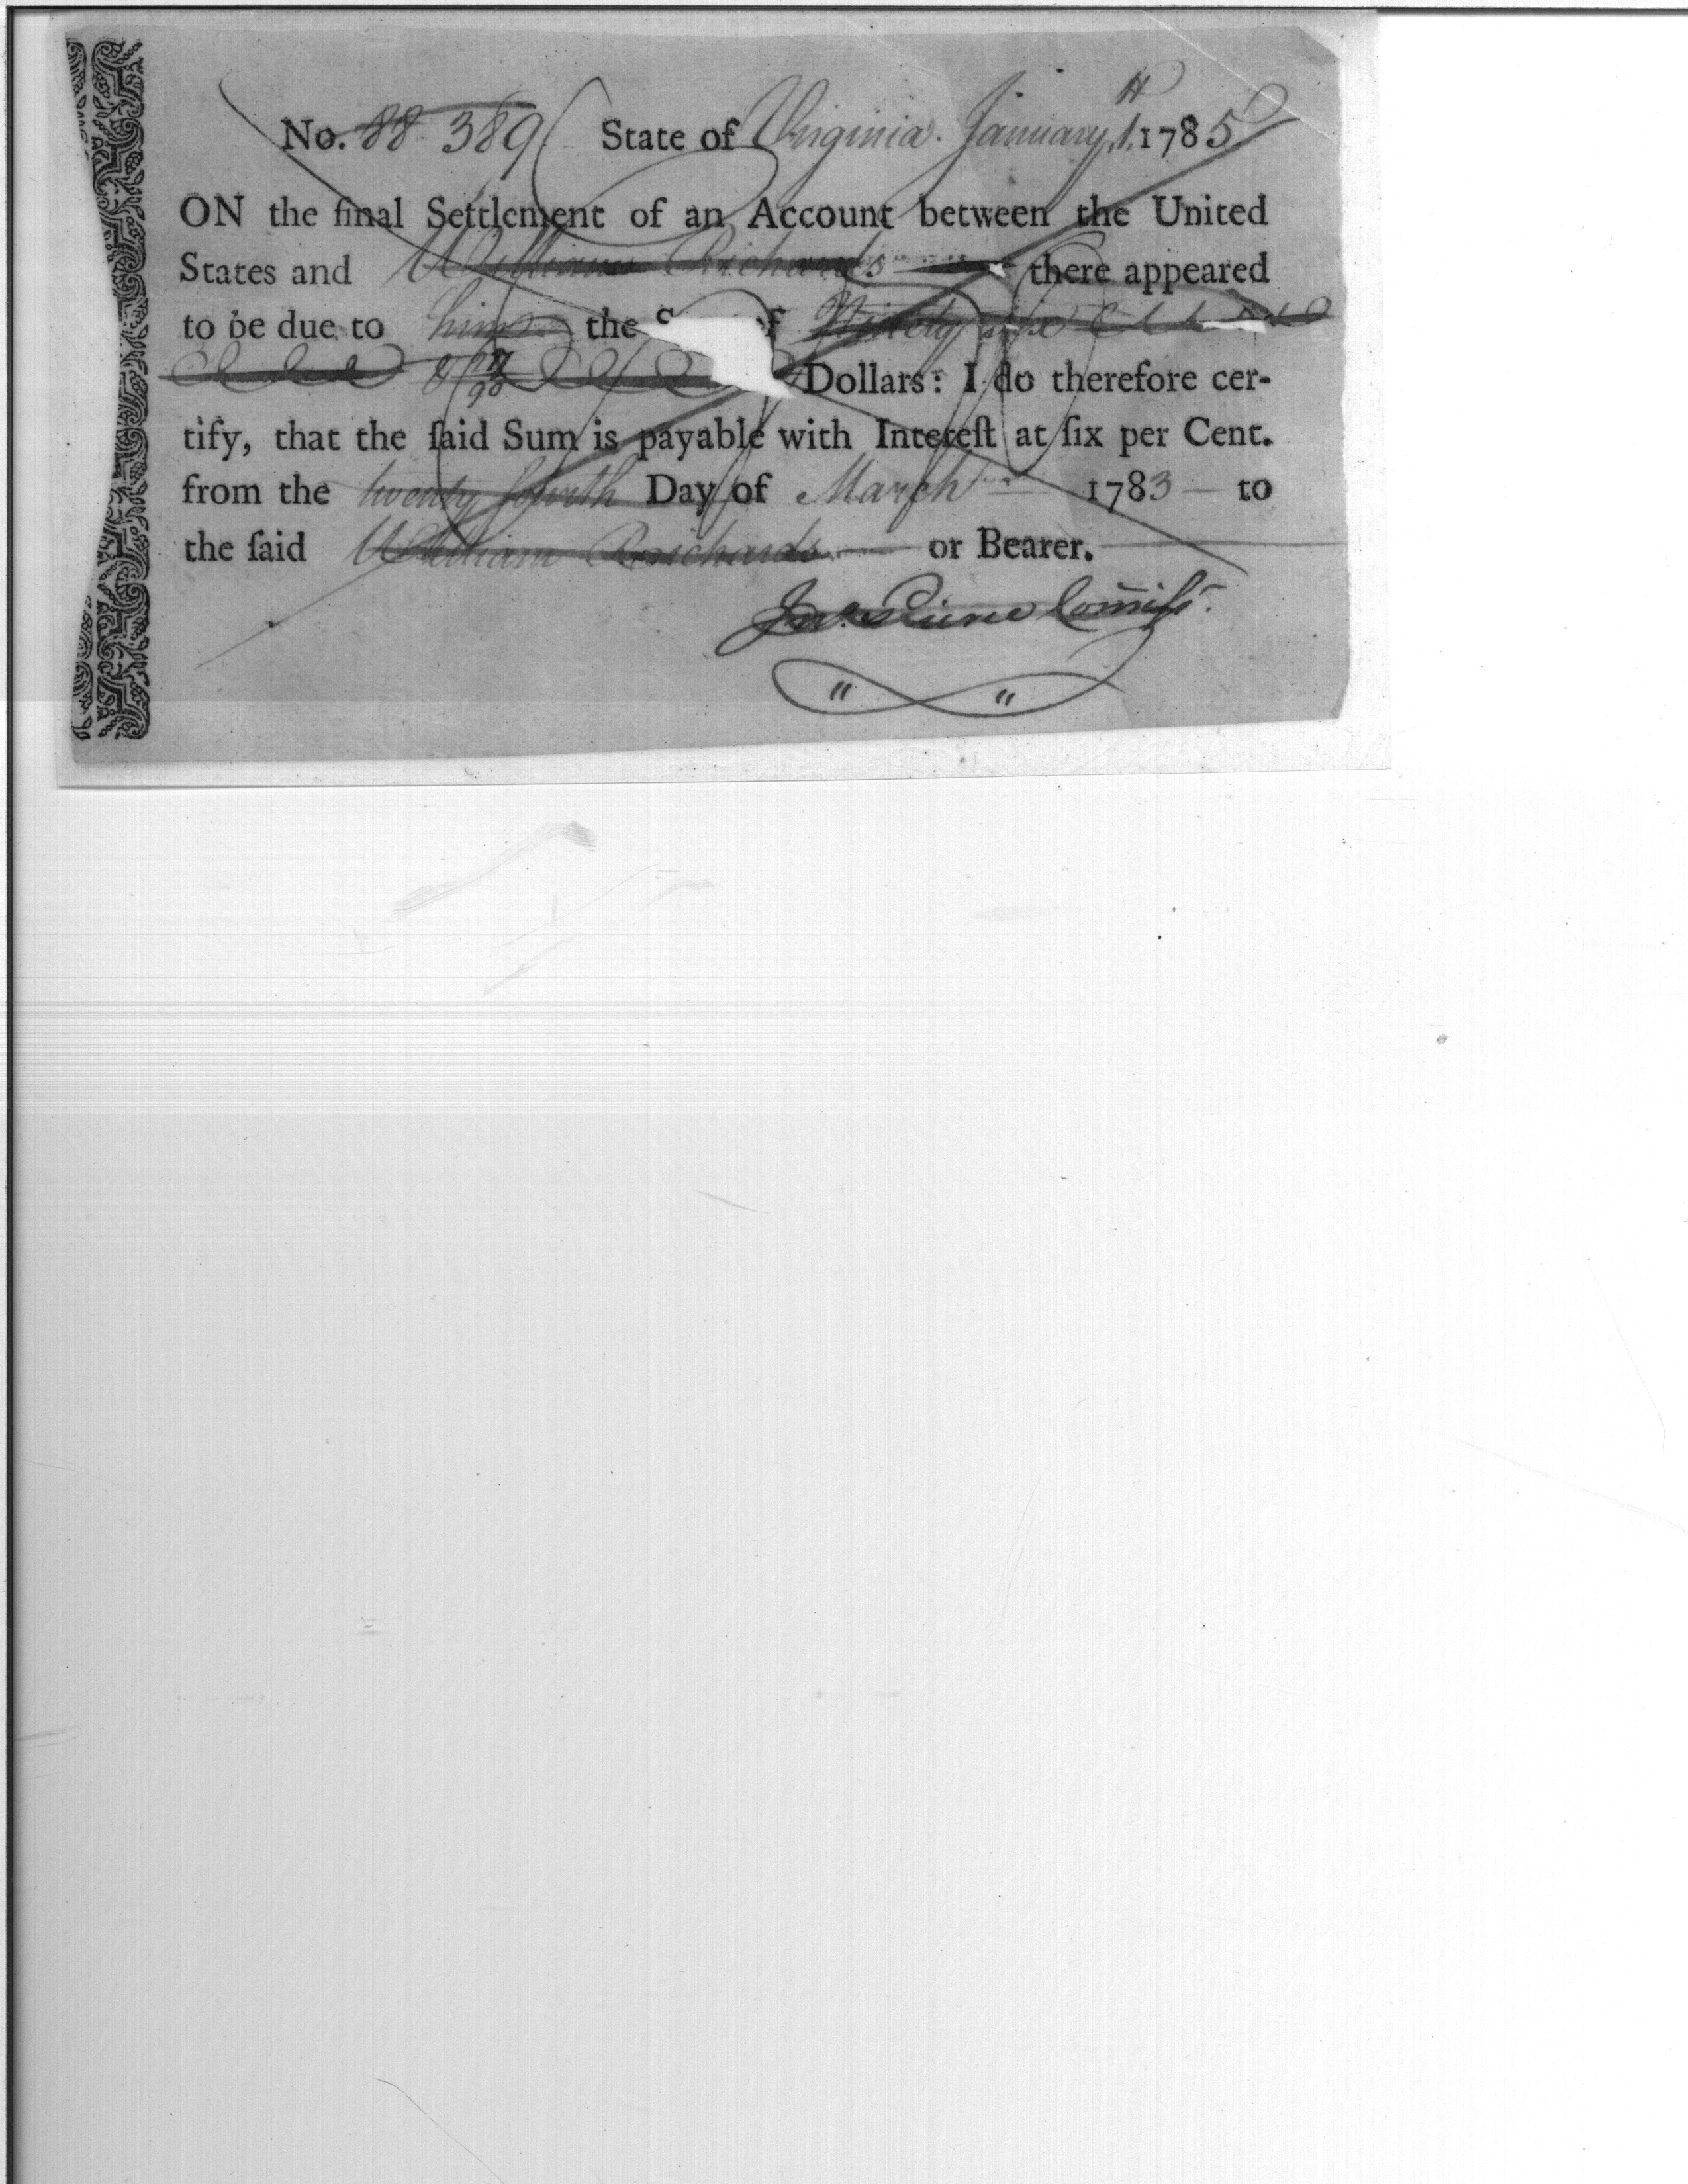 No. 88.389 State of Virginia. January 1. 1785
ON the final Settlement of an Account between the United
States and William Richards there appeared
to be due to him the S f Ninety six
& 27/90 Dollars: I do therefore cer-
tify, that the ſaid Sum is payable with Intereſt at ſix per Cent.
from the twenty fourth Day of March 1783 to
the ſaid William Richards or Bearer.
Jno. Pierce Commiſsr.